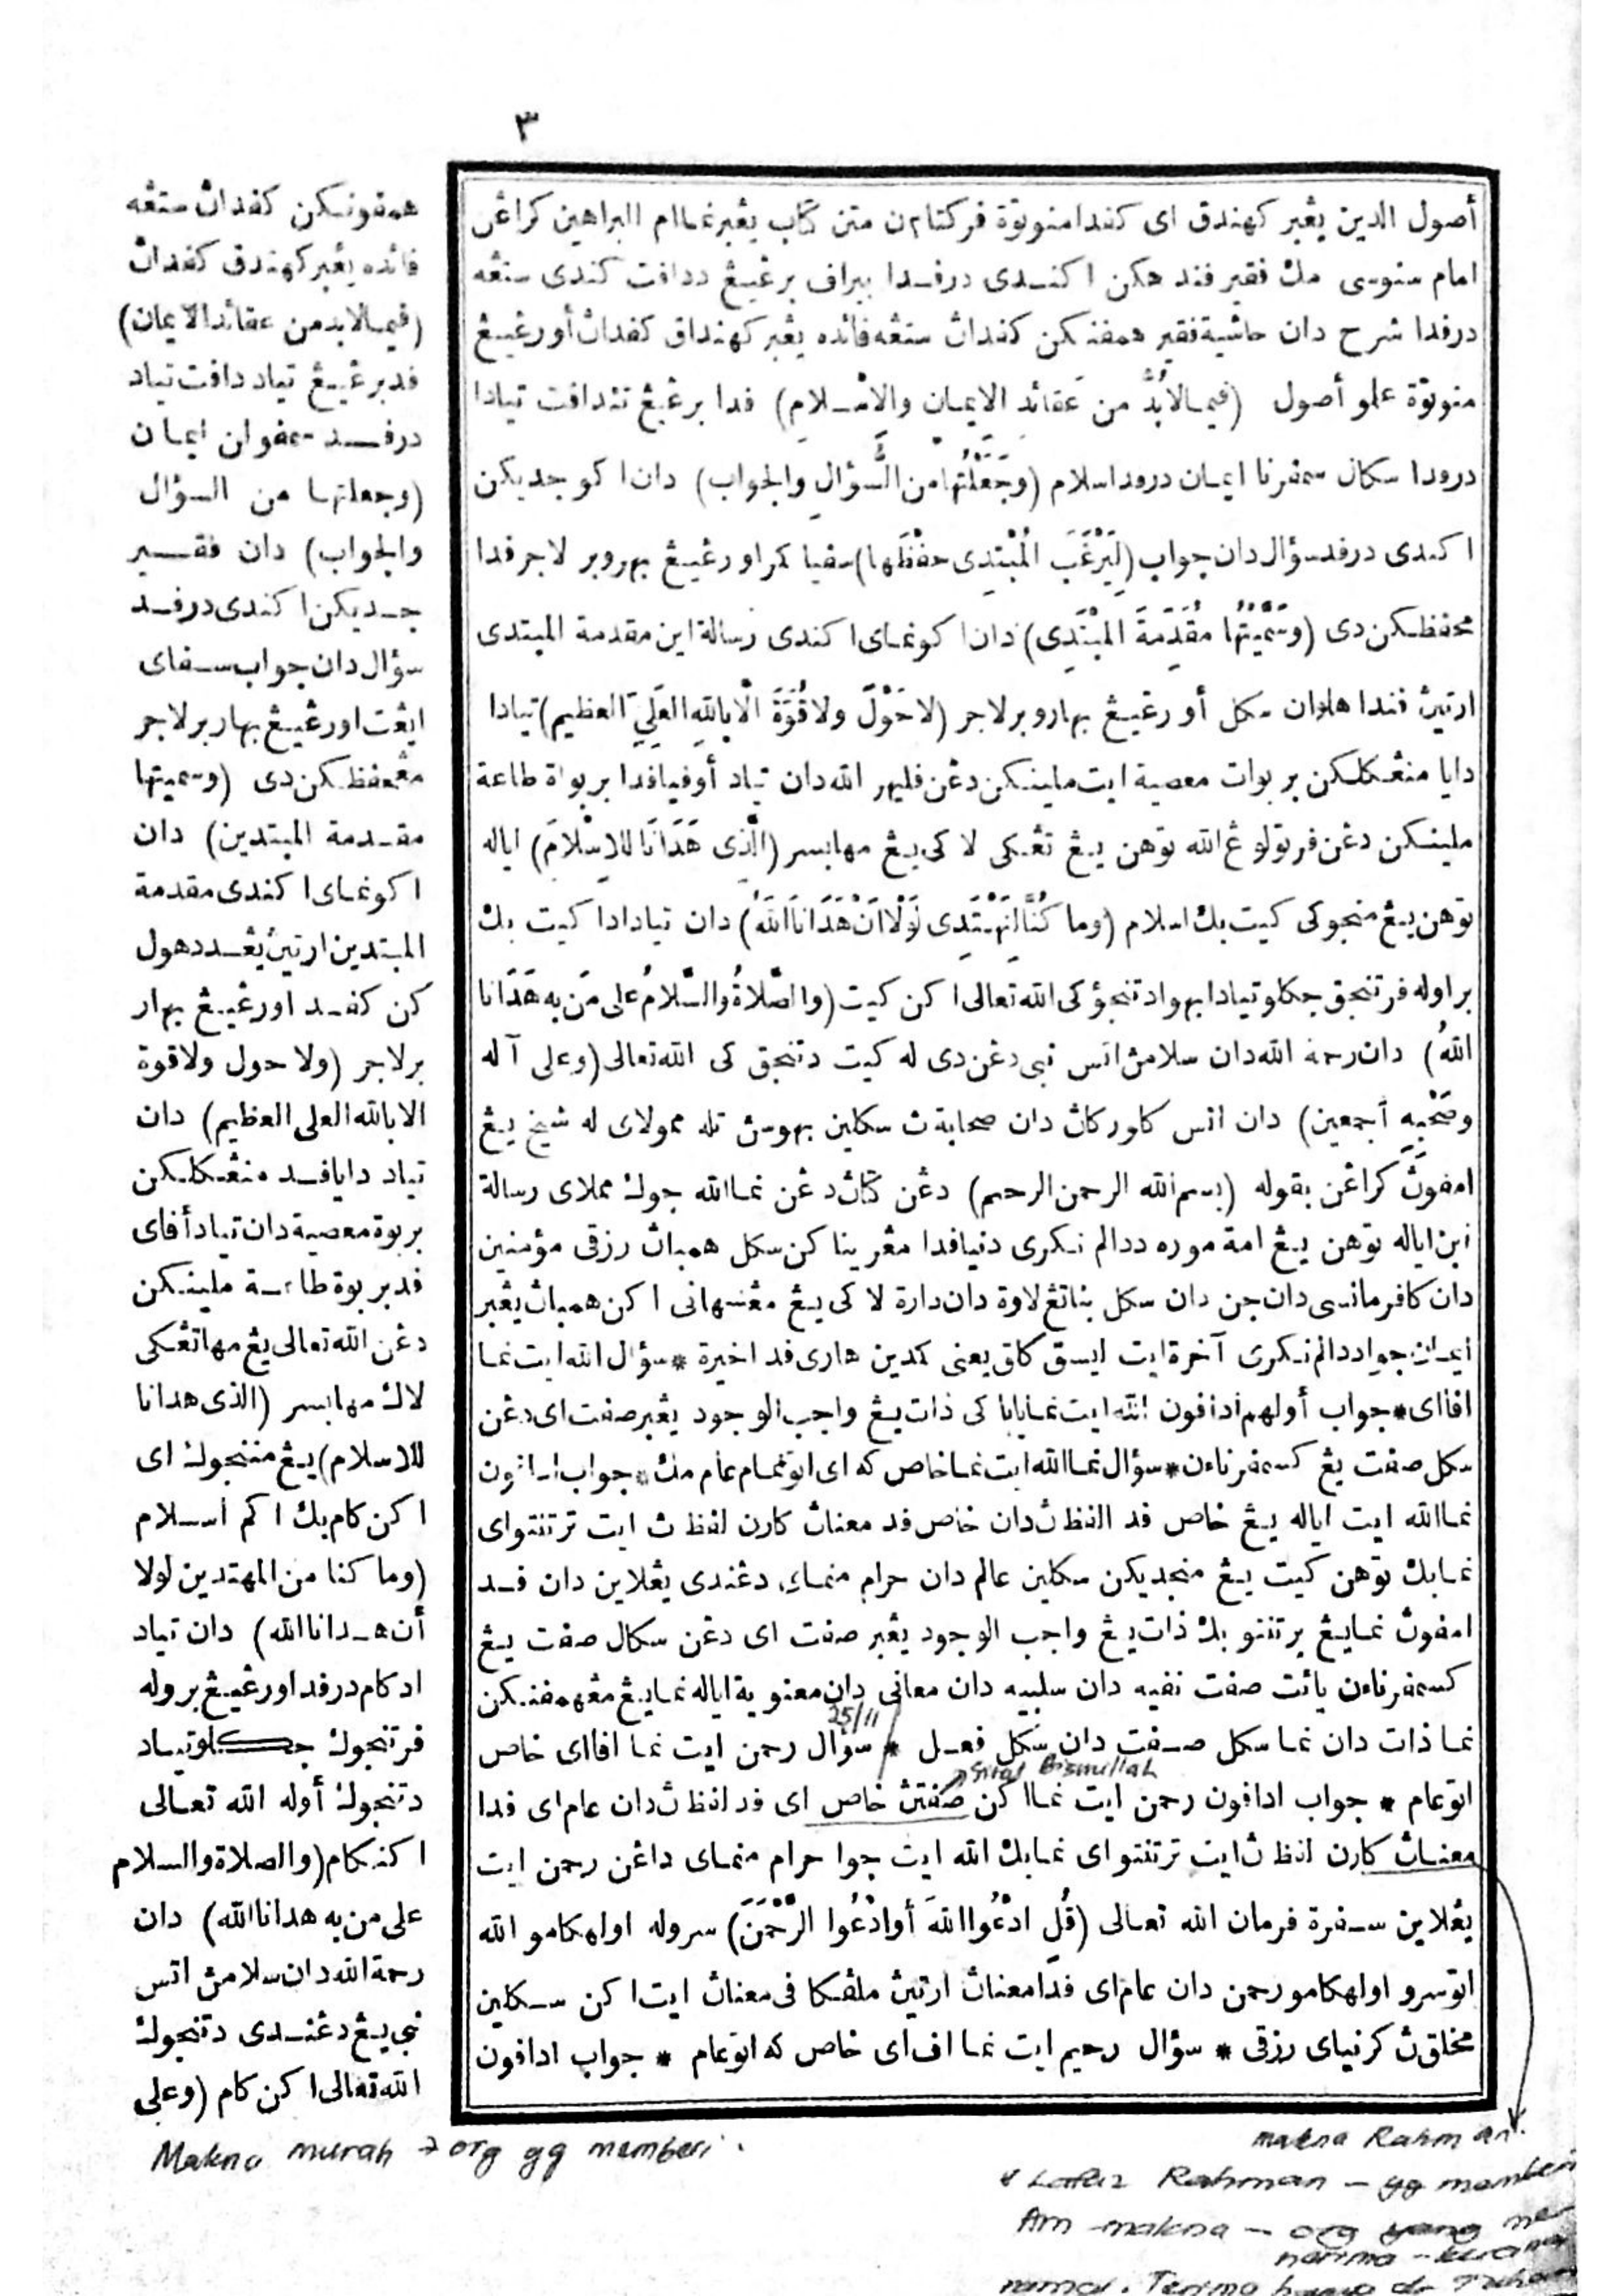 ٣
أصول الدين يڠبر كهندق اى كفدا منوتة فركتاءن متن كتاب يڠبرنماام البراهين كراڠن
امام سنوسى مك فقير فندهكن اكندى درفدا ببراف برڠيڠ ددافت كندى ستڠه
درفدا شرح دان حاشية فقير همفنكن كفدان ستڠه فائده يڠبر كهنداق كفدان أورڠيڠ
منوتوة علو أصول (فيما لابُدَّ من عَقائد الايمان والاسلام) فدا برڠيڠ تئدافت تيادا
دردا سكال سمفرنا ايمان درداسلام (وجَعَلْتُها من السُّؤالِ والجواب) دان اكو جديكن
اكندى درفد سؤال دان جواب (لِيَرْغَبَ المُبْتَدِى حفْظَها) سفيا كمراورڠيڠ بهروبر لاجر فدا
محفظكن دى (وسَمَّيْتُها مُقَدِّمَةَ المبْتَدِى) دان اكو نماى اكندى رسالة اين مقدمة المبتدى
ارتيڽ فندا هلوان سكل أورڠيڠ بهارو برلاجر (لاحَوْلَ ولاقُوَّةَ الّا باللهِ العَلِيِّ العظيم) تيادا
دايا منڠكلكن بربوات معصية ايت ملينكن دڠن فليهر الله دان تياد أوفيا فدا بربواة طاعة
ملينكن دڠن فرتولوڠ الله توهن يڠ تڠكى لاكى يڠ مهابسر (الَّذى هَدَانَا للاِسْلَامِ) اياله
توهن يڠ منجوكى كيت بك اسلام (وما كُنَّا لِنَهْتَدِى لَوْلَا اَنْ هَدَانَا اللهُ) دان تيادادا كيت بك
براوله فرتنجق جكلو تيادا بهوادتنجؤكى الله تعالى اكن كيت (والصَّلاةُ والسَّلامُ على مَن به هَدَانا
اللهُ) دان رحمة الله دان سلامڽ اتس نبى دڠن دى له كيت دتنجق كى الله تعالى (وعلى آله
وصَحْبِهِ أجمعين) دان اتس كاوركان دان صحابة ث سكلين بهوسڽ تله ممولاى له شيخ يڠ
امفوڽ كراڠن بقوله (بسم الله الرحمن الرحيم) دڠن كتاڽ دڠن نما الله جوك مملاى رسالة
اين اياله توهن يڠ امة موره ددالم نكرى دنيا فدا مڠريناكن سكل همباڽ رزقى مؤمنين
دان كافر مانسى دان جن دان سكل بناتڠ لاوة دان دارة لاكى يڠ مڠسهانى اكن همباڽ يڠبر
ايمان جواددالم نكرى آخرة ايت ايسق كاق يعنى كمدين هارى فد اخيرة * سؤال الله ايت نما
افااى * جواب أولهم ادافون الله ايت نمابابا كى ذات يڠ واجب الوجود يڠبر صفت اى دڠن
سكل صفت يڠ كسمفرناءن * سؤال نما الله ايت نما خاص كه اى اتونمام عام مك * جواب ادافون
نما الله ايت اياله يڠ خاص فد الفظ ث دان خاص فد معناڽ كارن لفظ ث ايت ترتنتواى
نمابك توهن كيت يڠ منجديكن سكلين عالم دان حرام منماى دڠندى يڠلاين دان فد
امفوڽ نمايڠ برتنتو بك ذات يڠ واجب الوجود يڠبر صفت اى دڠن سكال صفت يڠ
كسمفرناءن يائت صفت نفيه دان سلبيه دان معانى دان معنوية اياله نمايڠ مڠهمفنكن
25/11
نما ذات دان نما سكل صفت دان سكل فعل * سؤال رحمن ايت نما افااى خاص
sifat Bismillah
اتوعام * جواب ادافون رحمن ايت نمااكن صفتڽ خاص اى فد لفظ ث دان عام اى فدا
معناڽ كارن لفظ ث ايت ترتنتواى نمابك الله ايت جوا حرام منماى داڠن رحمن ايت
يڠلاين سفرة فرمان الله تعالى (قُلِ ادْعُوا اللهَ أوادْعُوا الرَّحْمَنَ) سروله اولهكامو الله
اتوسرو اولهكامو رحمن دان عام اى فدا معناڽ ارتيڽ ملڤكا فى معناڽ ايت اكن سكلين
مخلق ث كرنياى رزقى * سؤال رحيم ايت نما اف اى خاص كه اتوعام * جواب ادافون
همفونكن كفدان ستڠه
فائده يڠبر كهندق كفدان
(فيما لابد من عقائد الايمان)
فدبرڠيڠ تياد دافت تياد
درفد سمفوان ايمان
(وجعلتها من السؤال
والجواب) دان فقير
جديكن اكندى درفد
سؤال دان جواب سفاى
ايڠت اورڠيڠ بهار برلاجر
مڠحفظكن دى (وسميتها
مقدمة المبتدين) دان
اكو نماى اكندى مقدمة
المبتدين ارتيڽ يڠددهول
كن كفد اورڠيڠ بهار
برلاجر (ولا حول ولا قوة
الا بالله العلى العظيم) دان
تياد دايا فد منڠكلكن
بربوة معصية دان تياد أفاى
فدبربوة طاعة ملينكن
دڠن الله تعالى يڠ مهاتڠكى
لاك مهابسر (الذى هدانا
للاسلام) يڠ مننجوك اى
اكن كام بك اكم اسلام
(وما كنا من المهتدين لولا
أن هدانا الله) دان تياد
ادكام درفد اورڠيڠ بروله
فرتنجوك جكلو تياد
دتنجوك أوله الله تعالى
اكنكام (والصلاة والسلام
على من به هدانا الله) دان
رحمة الله دان سلامڽ اتس
نبى يڠ دڠندى دتنجوك
الله تعالى اكن كام (وعلى
Makna murah → org yg memberi.
makna Rahman.
Lafaz Rahman – yg memberi
Am makna – org yang me
nerima –
. Terima